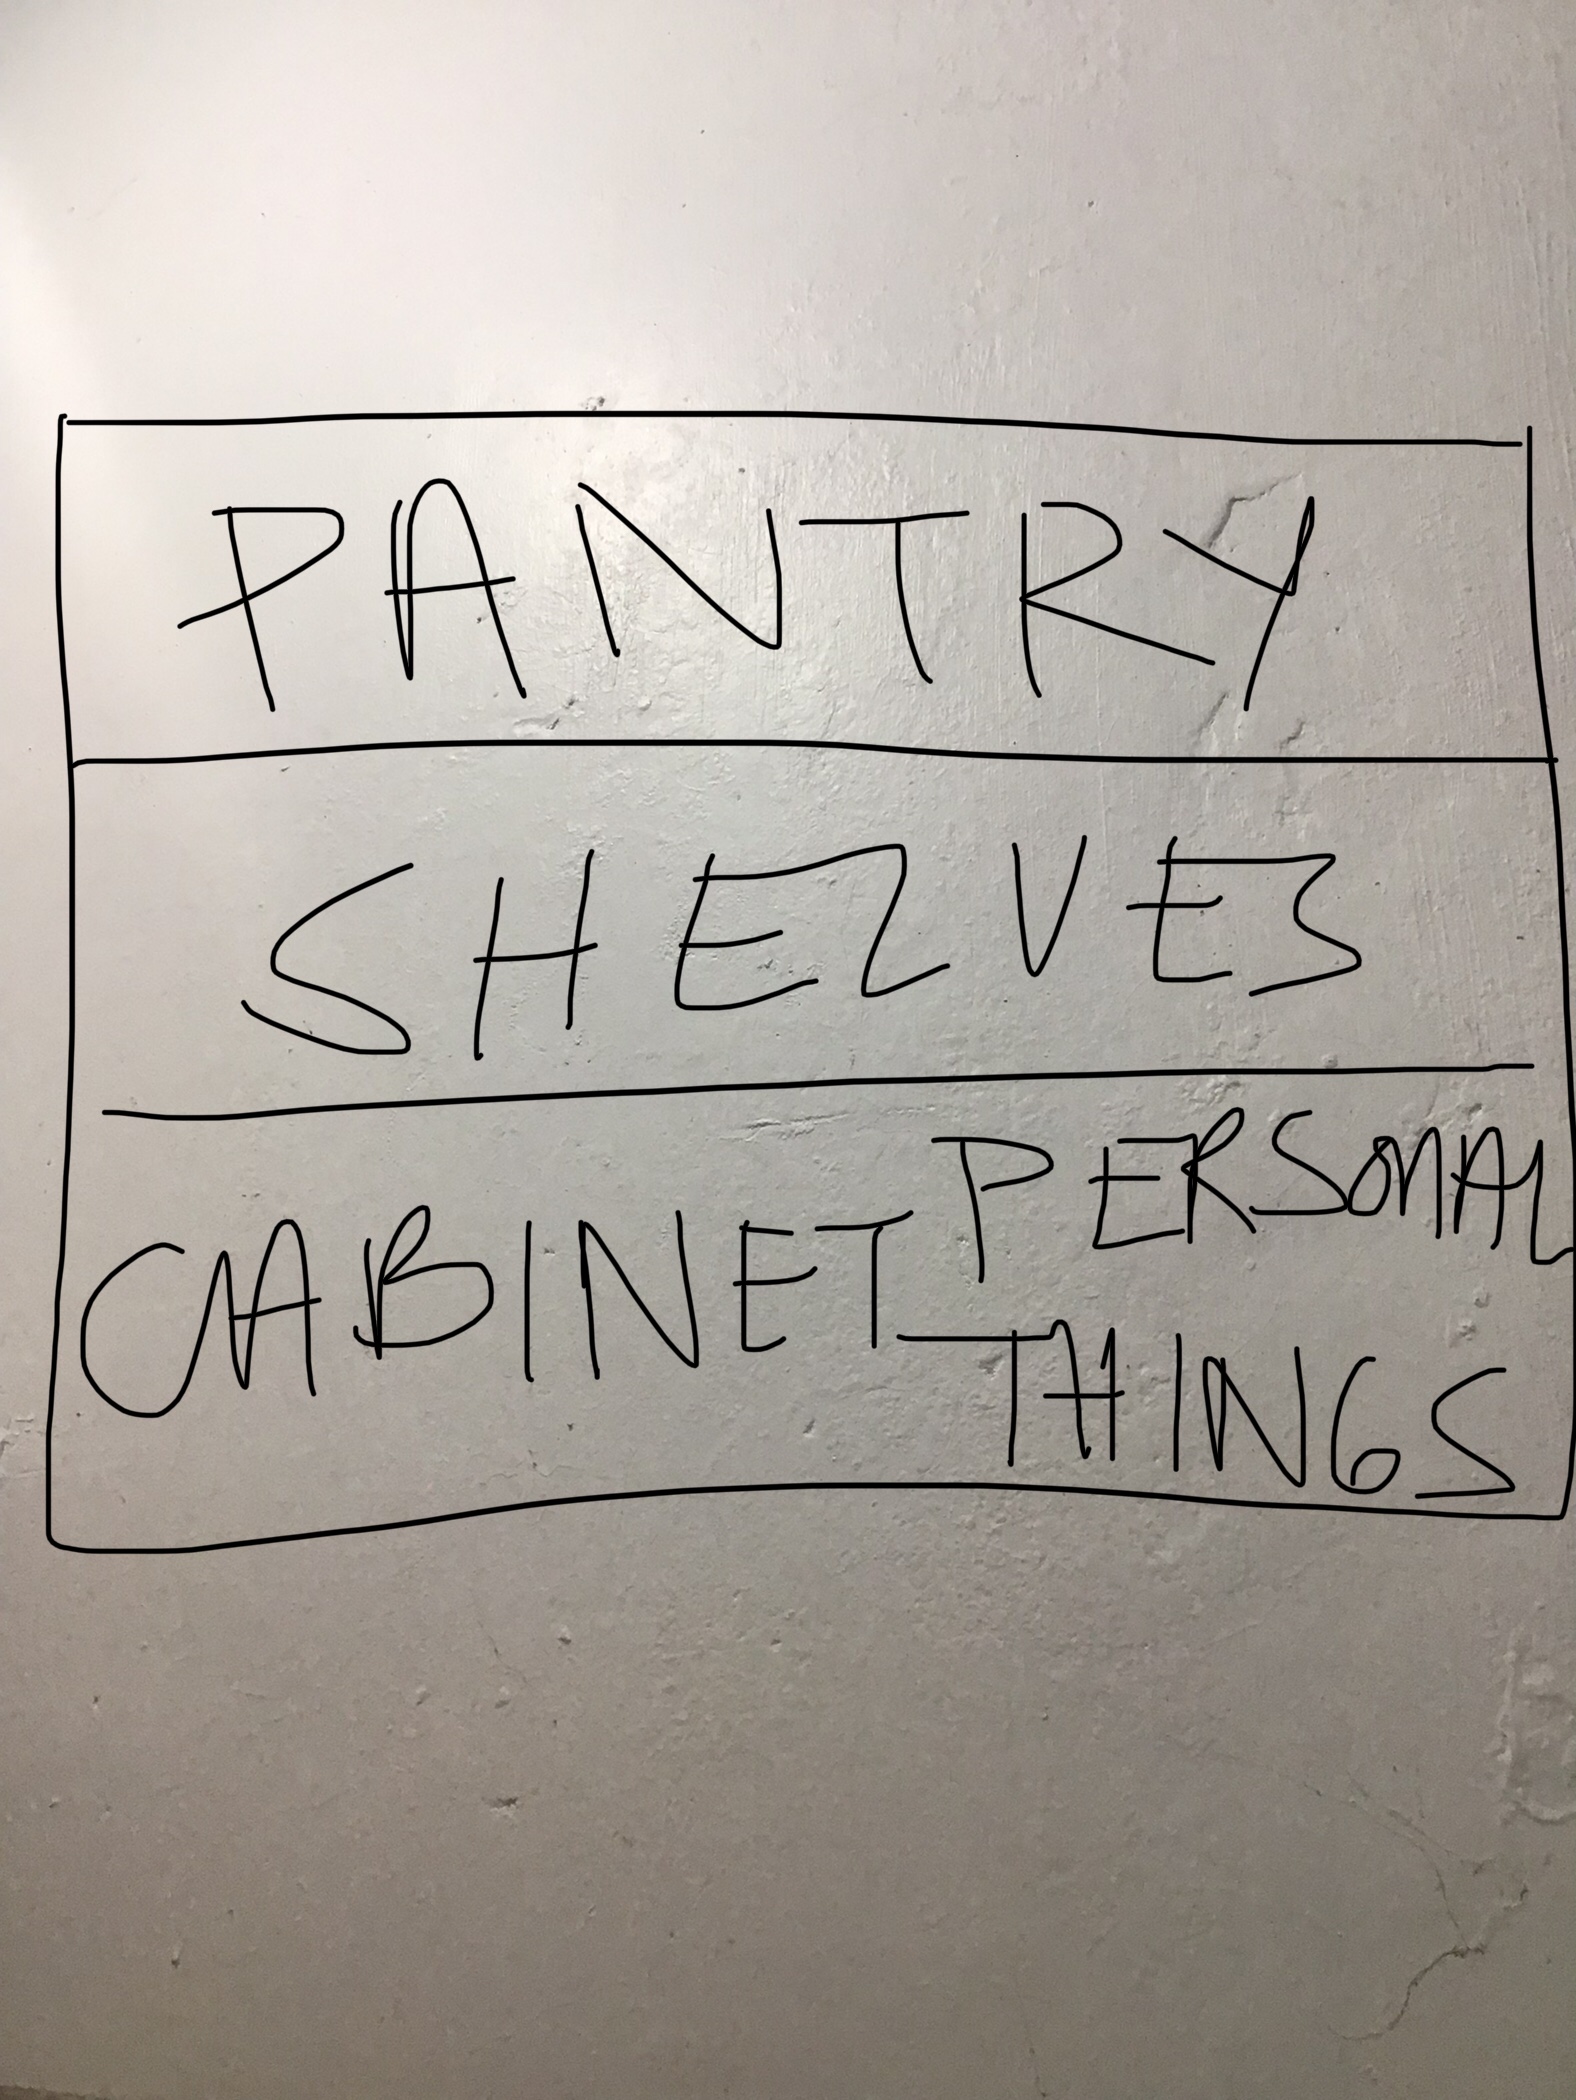 PANTRY
SHELVES
CABINET PERSONAL
THINGS